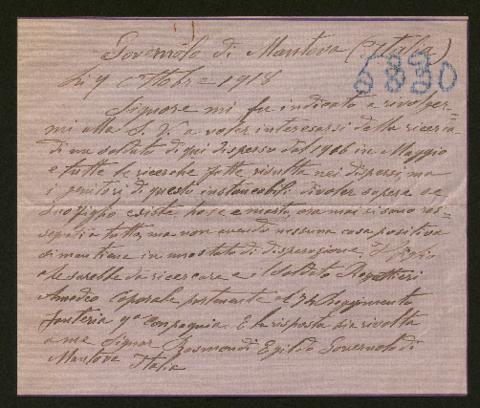 Governolo di Mantova (Italia)
li 9 Ottobre 1918
6830
Signore mi fu indicato a rivolger-
mi alla S. V. a voler interesarsi della ricerca
di un soldato di qui disperso dal 1916 in Maggio
e tutte le ricerche fatte risulta nei dispersi, ma
i genitori di questo instancabili di voler sapere se
suo figlio esiste, ho se e morto, ora mai si sono ras-
segnati a tutto, ma non avendo nessuna cosa positiva
si mantiene in uno stato di disperazione. Il figlio
che sarebbe da ricercare e il soldato
Amadeo Caporale partenente al Reggimento
fanteria 9a Compagnia. E la risposta sia rivolta
a me Signor Egildo Governolo di
Mantova Italia